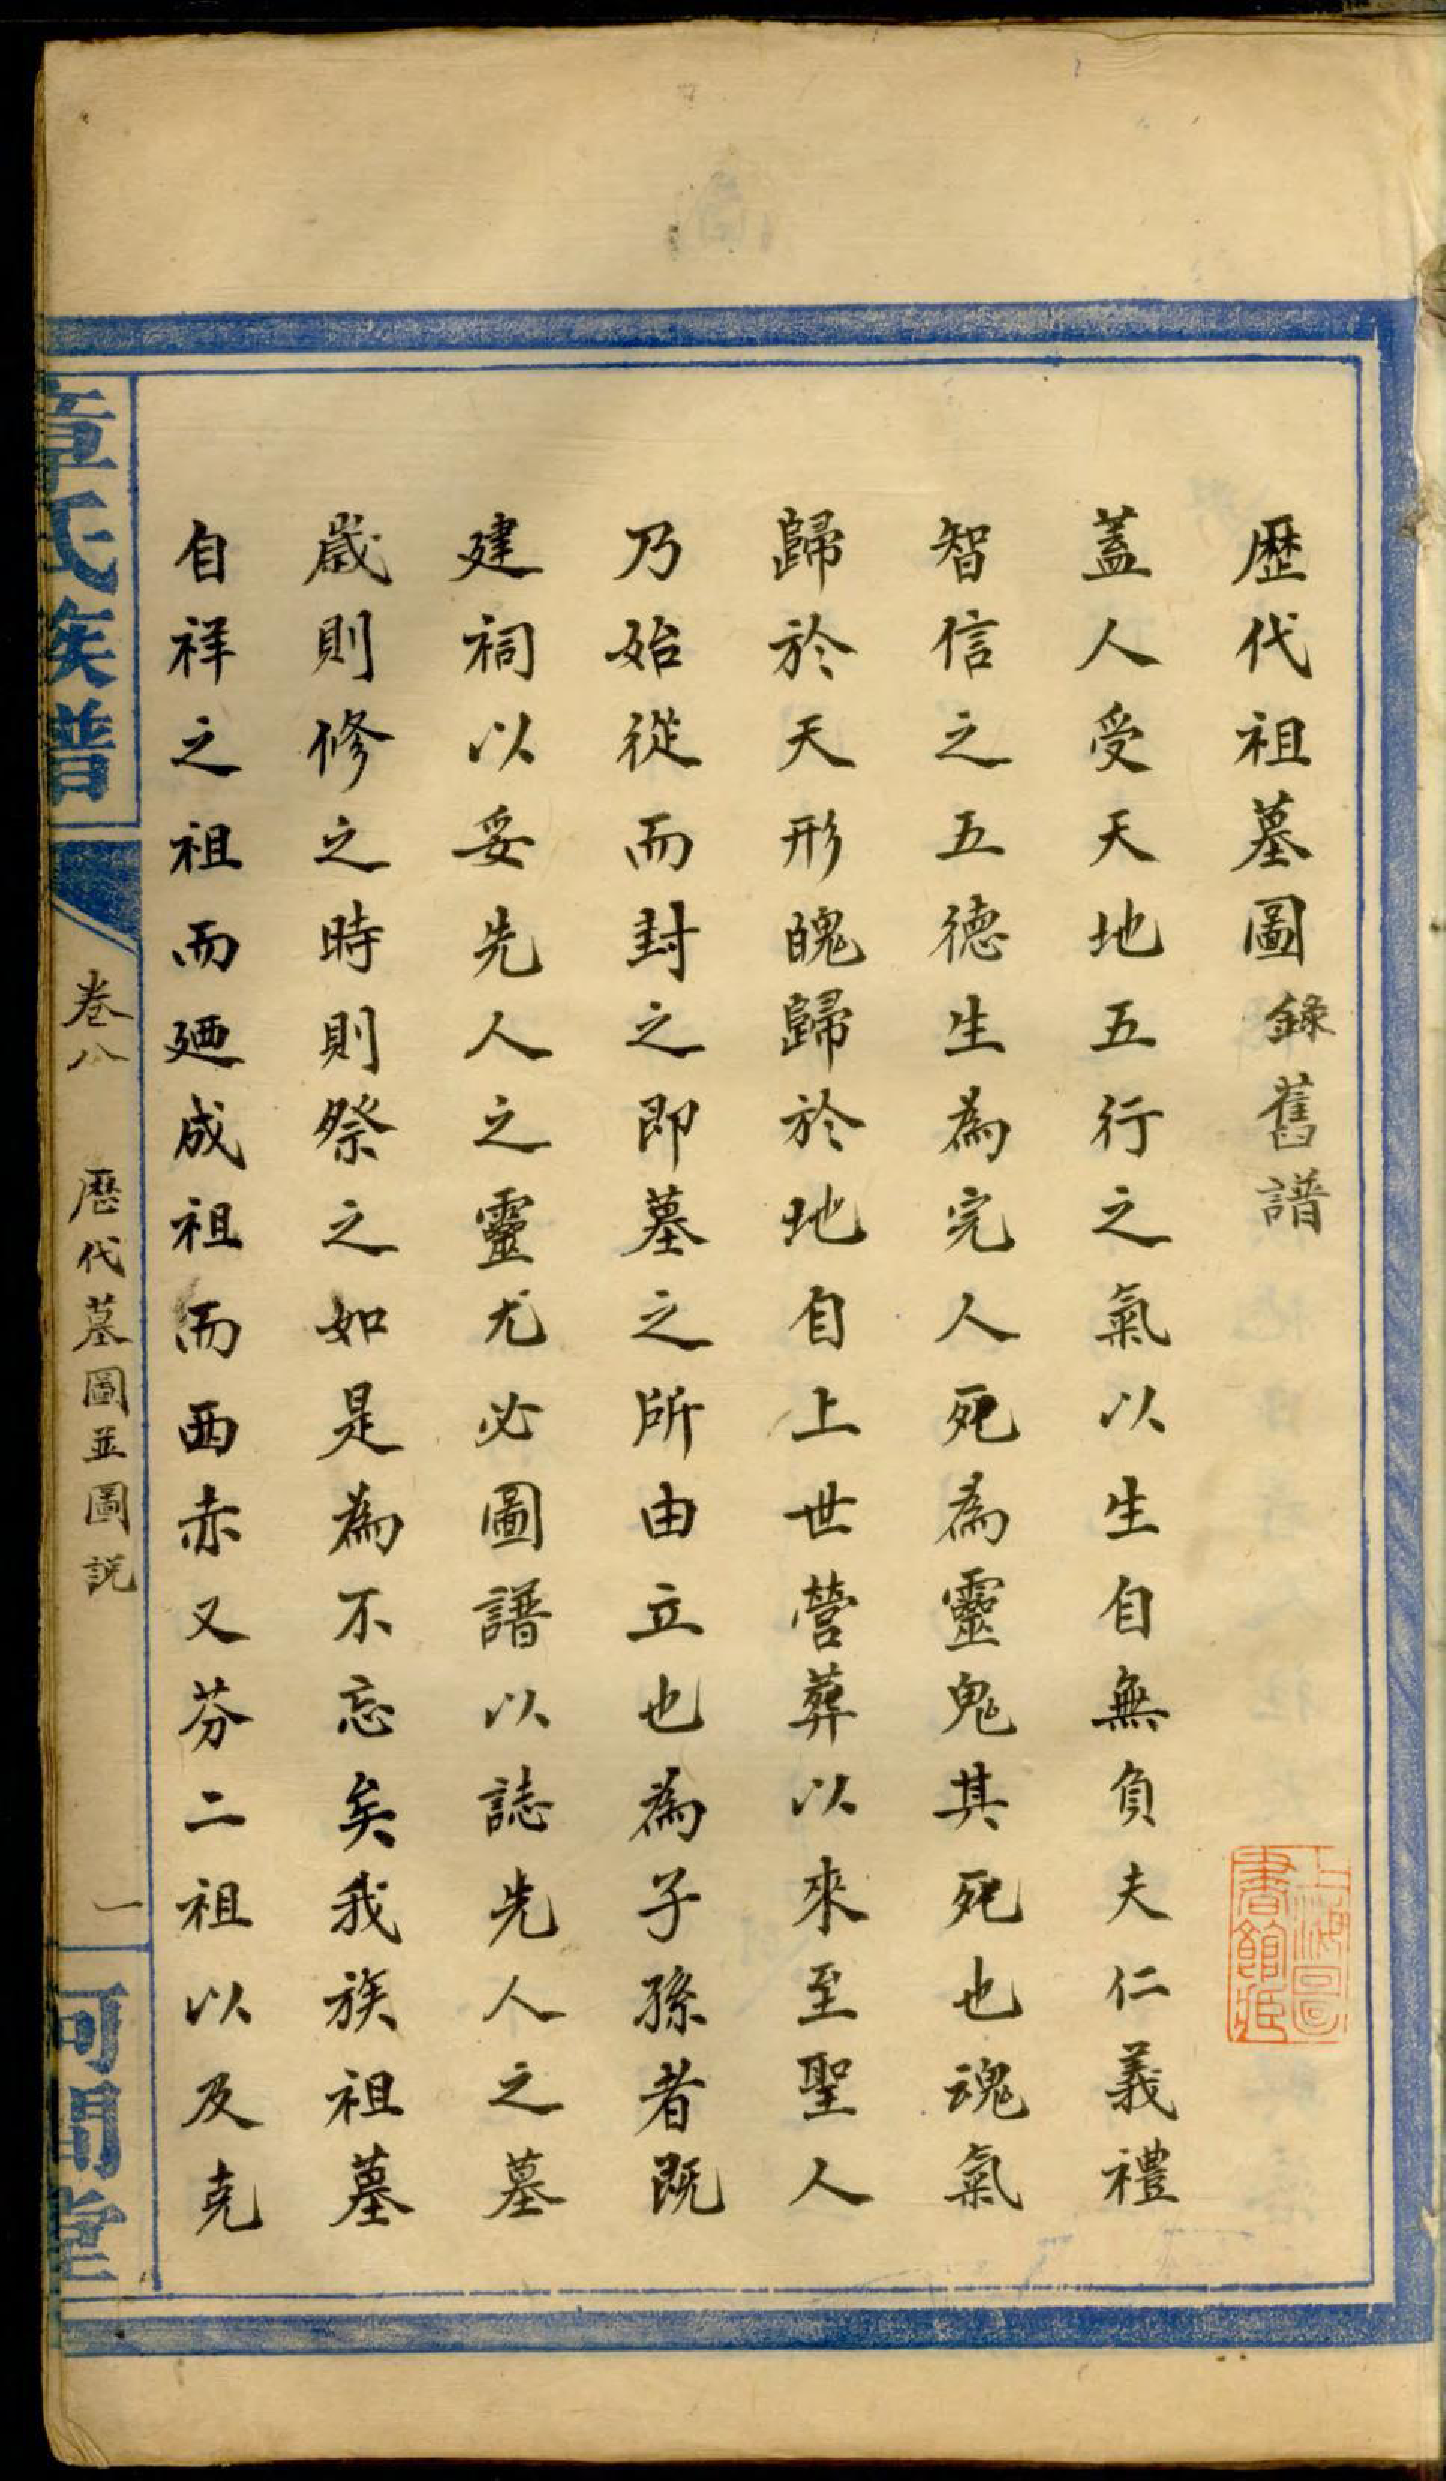 歷代祖墓圖 錄舊譜
蓋人受天地五行之氣以生自無負夫仁義禮
智信之五德生為完人死為靈鬼其死也魂氣
歸於天形魄歸於地自上世營葬以來至聖人
乃始從而封之即墓之所由立也為子孫者既
建祠以妥先人之靈尤必圖譜以誌先人之墓
歲則修之時則祭之如是為不忘矣我族祖墓
自祥之祖而廼成祖而西赤又芬二祖以及克
章氏族譜
卷八 歷代墓圖並圖說
一
可閒堂
上海圖
書館藏